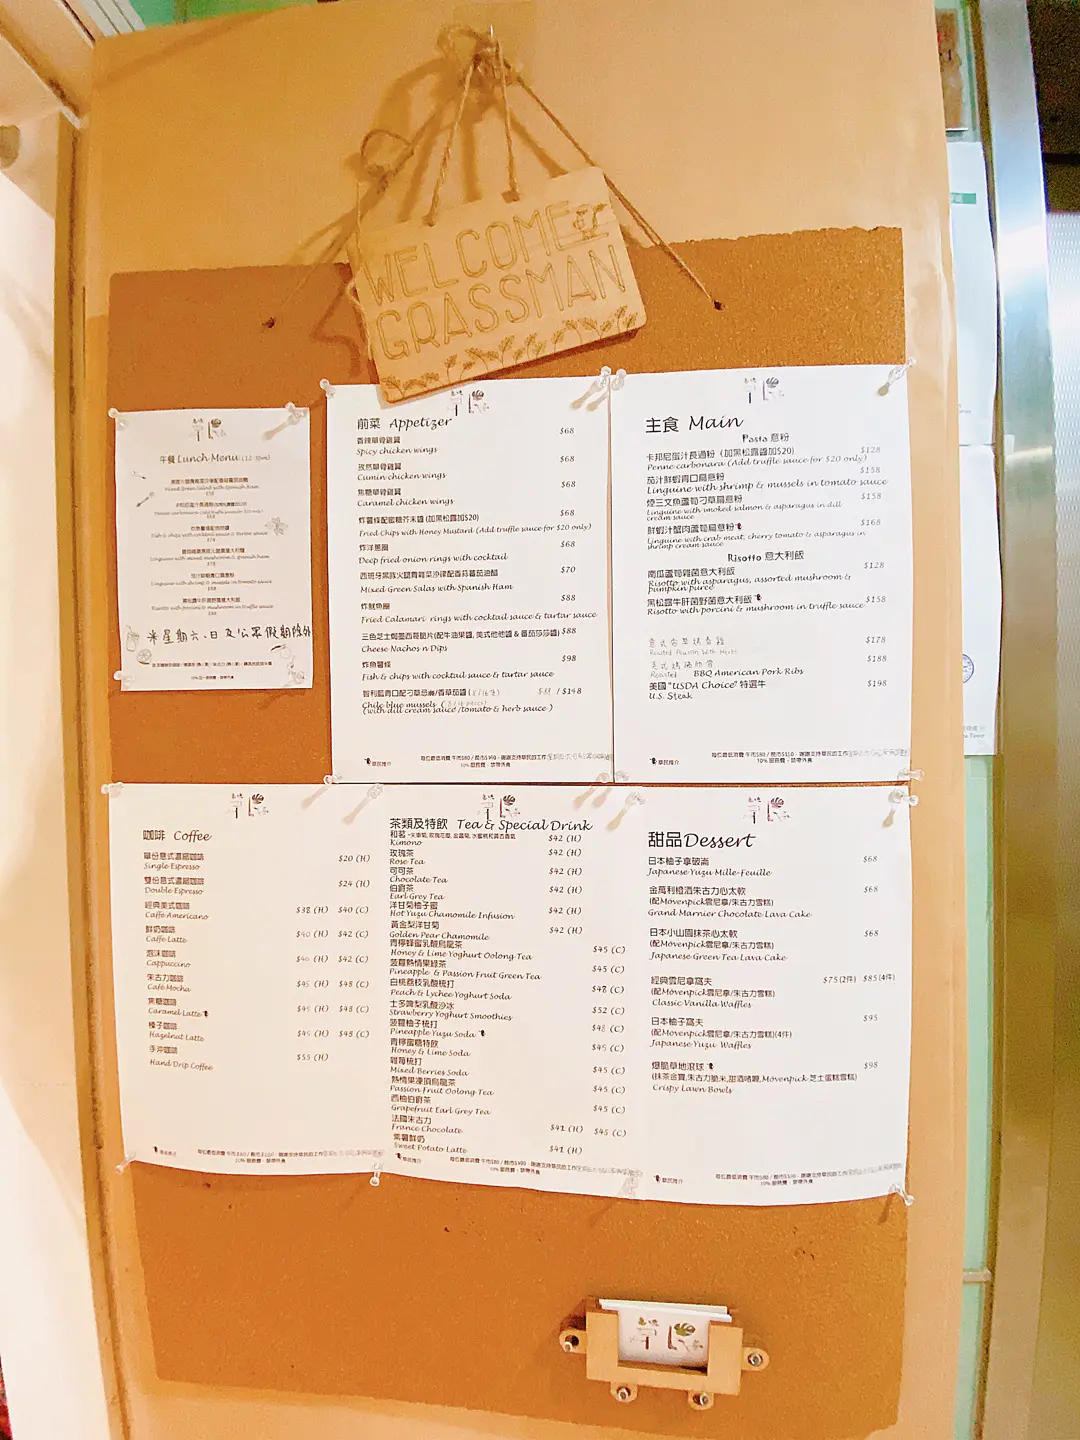 WELCOME
GRASSMAN
午餐 Lunch Menu
Mixed Green Salad with Spanish Ham
Fish & chips with cocktail sauce & tartar sauce
Linguine with mixed mushroom & spanish ham
Linguine with shrimp & mussels in tomato sauce
Risotto with porcini & mushroom in truffle sauce
米星期六、日及公眾假期除外
前菜 Appetizer
香辣單骨雞翼 $68
Spicy chicken wings
孜然單骨雞翼 $68
Cumin chicken wings
焦糖單骨雞翼 $68
Caramel chicken wings
炸薯條配蜜糖芥末醬 (加黑松露加$20)
Fried Chips with Honey Mustard (Add truffle sauce for $20 only)
炸洋蔥圈 $68
Deep fried onion rings with cocktail
西班牙黑豚火腿青雜菜沙律配香蒜蕃茄油醋 $70
Mixed Green Salas with Spanish Ham
炸魷魚圈 $88
Fried Calamari rings with cocktail sauce & tartar sauce
三色芝士焗墨西哥脆片(配牛油果醬, 美式他他醬 & 番茄莎莎醬) $88
Cheese Nachos n Dips
炸魚薯條 $98
Fish & chips with cocktail sauce & tartar sauce
智利藍青口配刁草忌廉/香草茄醬 / $148
Chile blue mussels
(with dill cream sauce /tomato & herb sauce )
草民推介
10% 服務費・禁帶外食
主食 Main
Pasta 意粉
卡邦尼蛋汁長通粉 (加黑松露醬加$20) $128
Penne carbonara (Add truffle sauce for $20 only)
茄汁鮮蝦青口扁意粉 $158
Linguine with shrimp & mussels in tomato sauce
煙三文魚蘆筍刁草扁意粉 $158
Linguine with smoked salmon & asparagus in dill
cream sauce
鮮蝦汁蟹肉蘆筍扁意粉 $168
Linguine with crab meat, cherry tomato & asparagus in
shrimp cream sauce
Risotto 意大利飯
南瓜蘆筍雜菌意大利飯 $128
Risotto with asparagus, assorted mushroom &
pumpkin puree
黑松露牛肝菌野菌意大利飯 $158
Risotto with porcini & mushroom in truffle sauce
$178
$188
Roasted BBQ American Pork Ribs
美國 "USDA Choice" 特選牛 $198
U.S. Steak
草民推介
10% 服務費・禁帶外食
咖啡 Coffee
單份意式濃縮咖啡 $20 (H)
Single Espresso
雙份意式濃縮咖啡 $24 (H)
Double Espresso
經典美式咖啡 $38 (H) $40 (C)
Caffè Americano
鮮奶咖啡 $40 (H) $42 (C)
Caffè Latte
泡沫咖啡 $40 (H) $42 (C)
Cappuccino
朱古力咖啡 $45 (H) $48 (C)
Café Mocha
焦糖咖啡 $45 (H) $48 (C)
Caramel Latte
榛子咖啡 $45 (H) $48 (C)
Hazelnut Latte
手沖咖啡 $55 (H)
Hand Drip Coffee
10% 服務費・禁帶外食
茶類及特飲 Tea & Special Drink
$42 (H)
Kimono
玫瑰茶 $42 (H)
Rose Tea
可可茶 $42 (H)
Chocolate Tea
伯爵茶 $42 (H)
Earl Grey Tea
洋甘菊柚子蜜 $42 (H)
Hot Yuzu Chamomile Infusion
黃金梨洋甘菊 $42 (H)
Golden Pear Chamomile
青檸蜂蜜乳酸烏龍茶 $45 (C)
Honey & Lime Yoghurt Oolong Tea
菠蘿熱情果綠茶 $45 (C)
Pineapple & Passion Fruit Green Tea
白桃荔枝乳酸梳打 $48 (C)
Peach & Lychee Yoghurt Soda
士多啤梨乳酸沙冰 $52 (C)
Strawberry Yoghurt Smoothies
菠蘿柚子梳打 $48 (C)
Pineapple Yuzu Soda
青檸蜜糖特飲 $45 (C)
Honey & Lime Soda
雜莓梳打 $45 (C)
Mixed Berries Soda
熱情果凍頂烏龍茶 $45 (C)
Passion Fruit Oolong Tea
西柚伯爵茶 $45 (C)
Grapefruit Earl Grey Tea
法國朱古力 $41 (H) $45 (C)
France Chocolate
紫薯鮮奶 $41 (H)
Sweet Potato Latte
草民推介
10% 服務費・禁帶外食
甜品 Dessert
日本柚子拿破崙 $68
Japanese Yuzu Mille-Feuille
金萬利橙酒朱古力心太軟 $68
(配Mövenpick雲尼拿/朱古力雪糕)
Grand Marnier Chocolate Lava Cake
日本小山園抹茶心太軟 $68
(配Mövenpick雲尼拿/朱古力雪糕)
Japanese Green Tea Lava Cake
經典雲尼拿窩夫 $75 (2件) $85 (4件)
(配Mövenpick雲尼拿/朱古力雪糕)
Classic Vanilla Waffles
日本柚子窩夫 $95
(配Mövenpick雲尼拿/朱古力雪糕)(4件)
Japanese Yuzu Waffles
爆脆草地滾球 $98
Crispy Lawn Bowls
草民推介
10% 服務費・禁帶外食